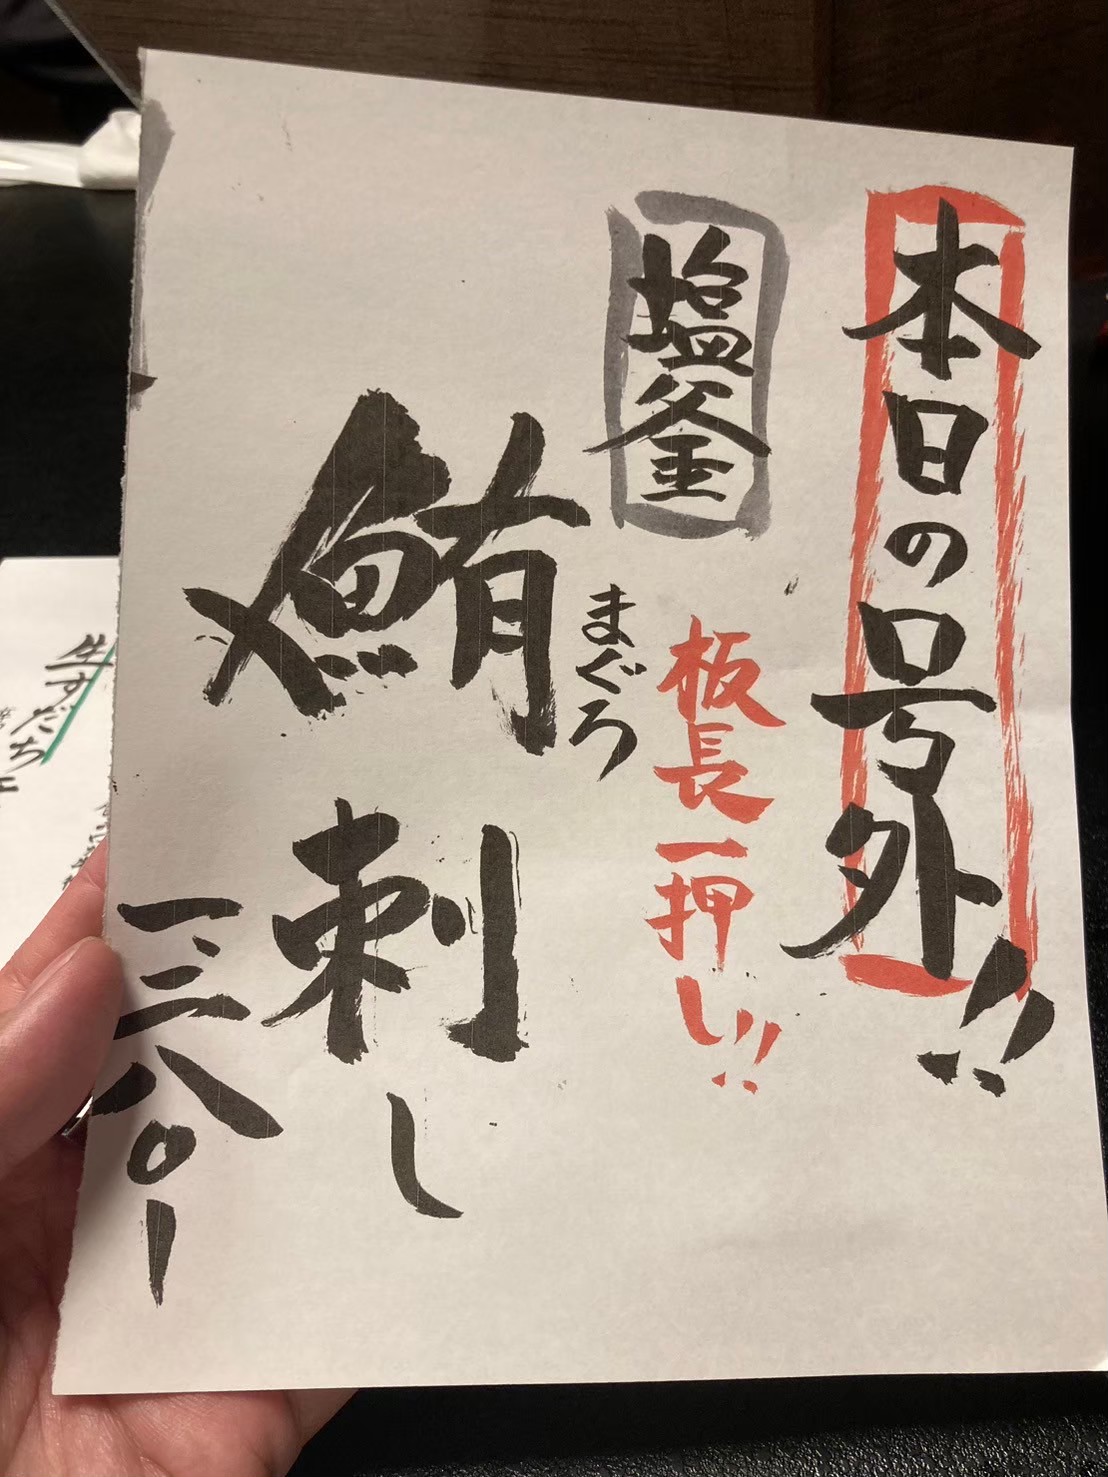 本日の号外!!
塩釜
板長一押し!!
まぐろ
鮪刺し
一三八〇ー
生すだち